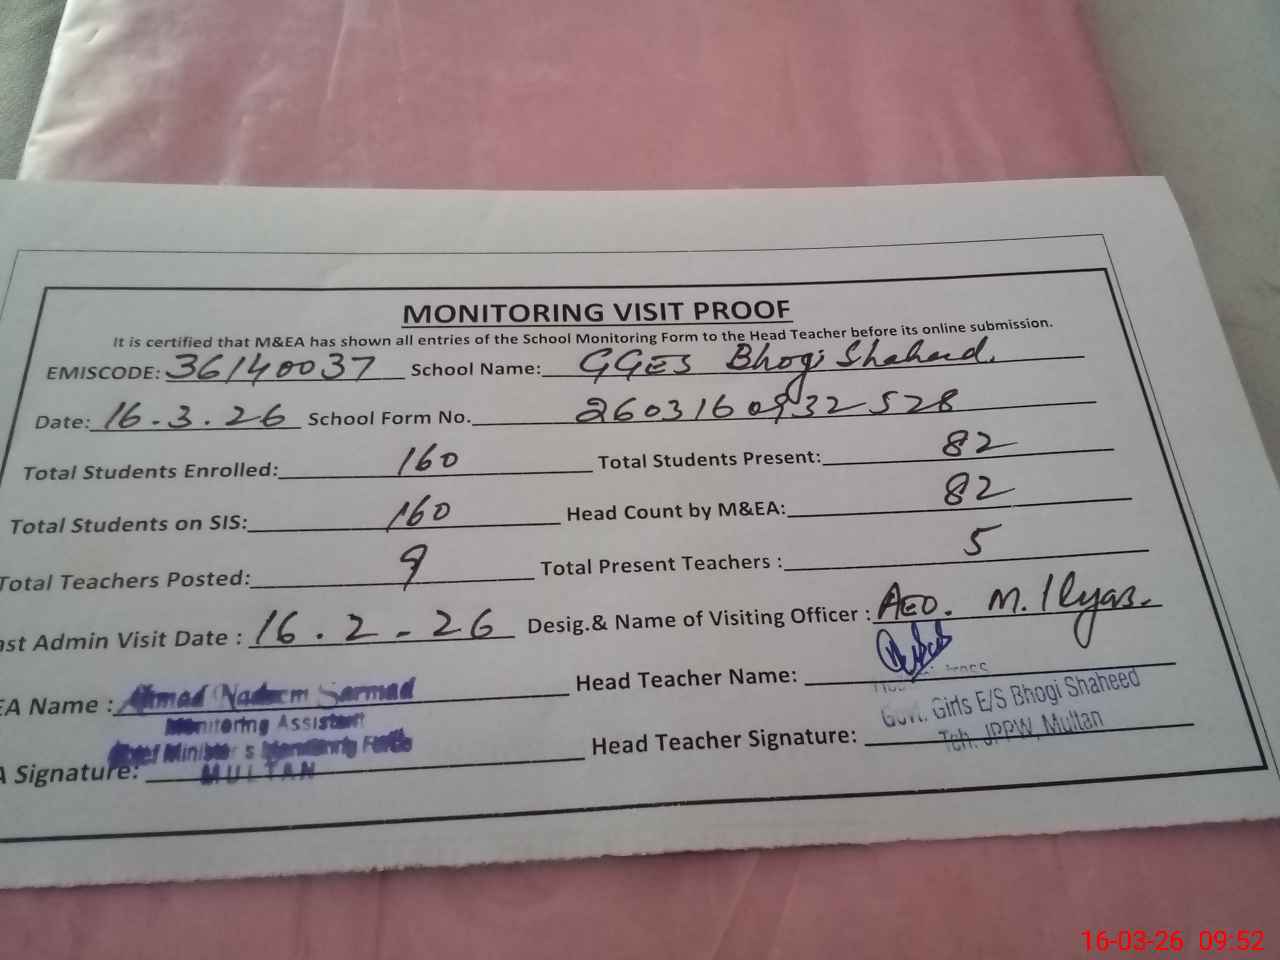 MONITORING VISIT PROOF
It is certified that M&EA has shown all entries of the School Monitoring Form to the Head Teacher before its online submission.
EMISCODE: 36140037 School Name: GGES Bhogi Shaheed.
Date: 16.3.26 School Form No. 2603160932528
Total Students Enrolled: 160 Total Students Present: 82
Total Students on SIS: 160 Head Count by M&EA: 82
Total Teachers Posted: 9 Total Present Teachers : 5
ast Admin Visit Date : 16.2-26 Desig.& Name of Visiting Officer : AEO. M. Ilyas.
EA Name : Ahmad Nadeem Sarmad Head Teacher Name:
Monitoring Assistant Govt. Girls E/S Bhogi Shaheed
Chief Minister's Monitoring Force Head Teacher Signature: Teh. JPPW, Multan
A Signature: MULTAN
16-03-26 09:52